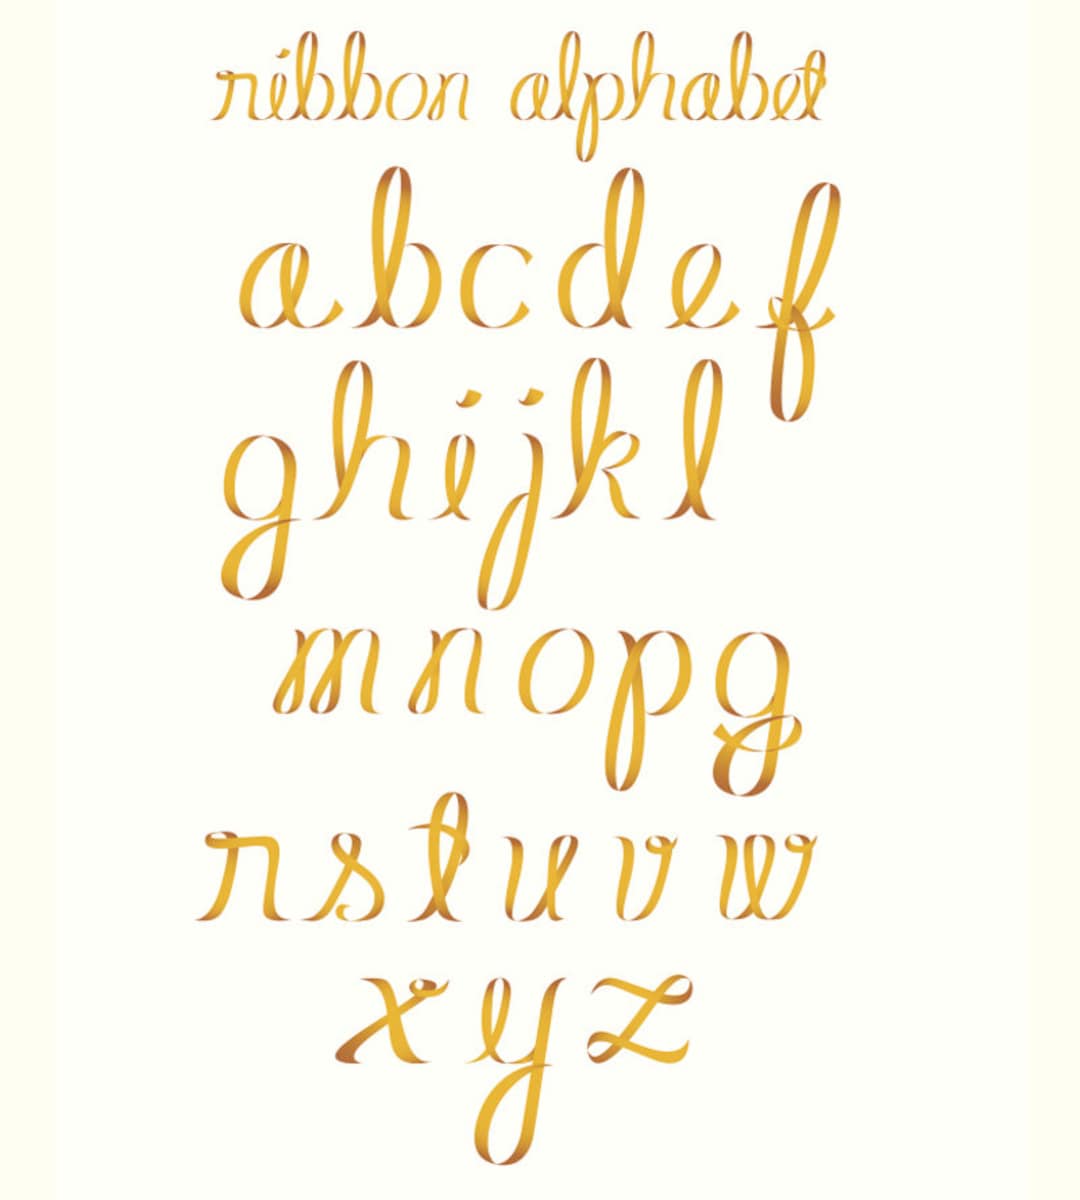 ribbon alphabet
a b c d e f
g h i j k l
m n o p q
r s t u v w
x y z